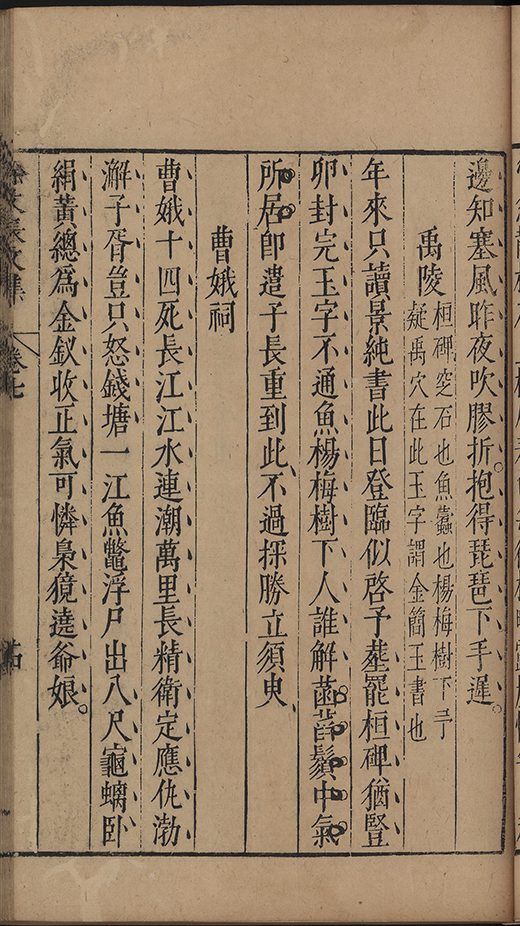 邊知塞風昨夜吹膠折抱得琵琶下手遲。
禹陵
桓碑窆石也魚蠡也楊梅樹下亏
疑禹穴在此玉字謂金簡玉書也
年來只讀景純書此日登臨似啓予塟罷桓碑猶豎
卯封完玉字不通魚楊梅樹下人誰解菡萏鬚中氣
所居即遣子長重到此不過探勝立須臾
曹娥祠
曹娥十四死長江江水連潮萬里長精衛定應仇渤
澥子胥豈只怒錢塘一江魚鼈浮尸出八尺龜螭卧
絹黃總爲金釵收正氣可憐梟獍遶爺娘。
徐文長文集
卷七